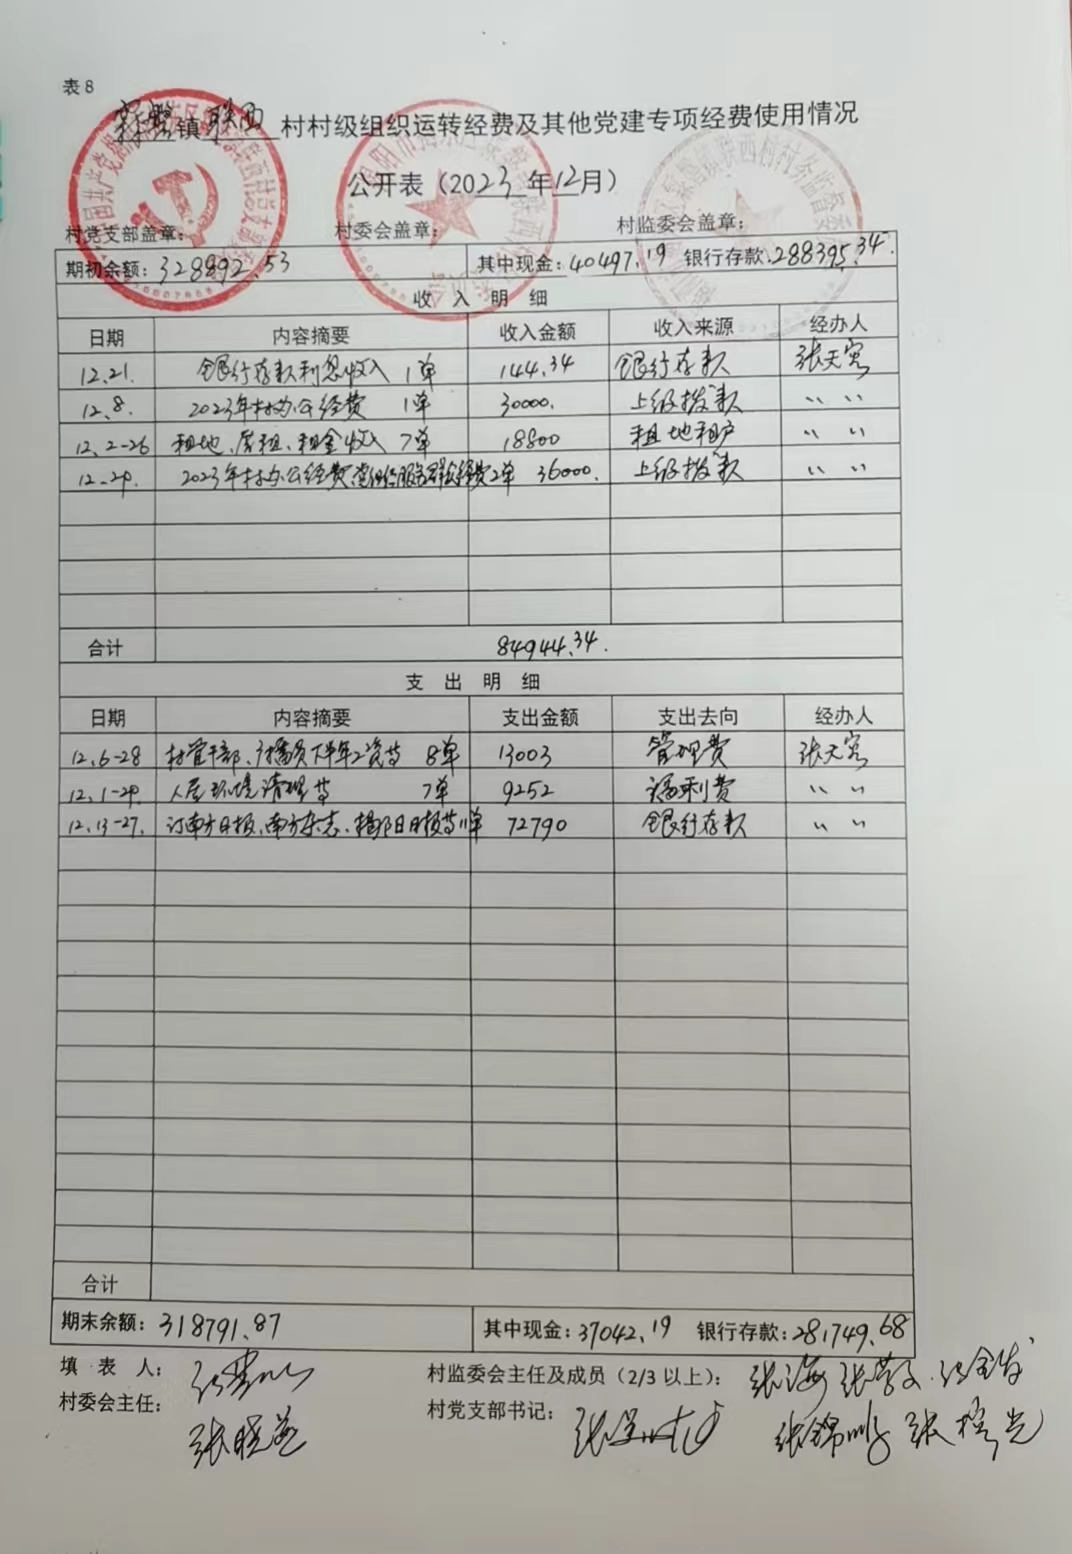 表8
霖磐镇联西村村级组织运转经费及其他党建专项经费使用情况
公开表（2023年12月）
村党支部盖章： 村委会盖章： 村监委会盖章：
期初余额：328892.53 其中现金：40497.19 银行存款：288395.34.
收 入 明 细
日期 内容摘要 收入金额 收入来源 经办人
12.21. 银行存款利息收入 1单 144.34 银行存款 张天宏
12.8. 2023年村办公经费 1单 30000. 上级拨款 〃 〃
12.2-26 租地、房租、租金收入 7单 18800 租地租户 〃 〃
12-29. 2023年村办公经费 服务群众经费2单 36000. 上级拨款 〃 〃
合计 84944.34.
支 出 明 细
日期 内容摘要 支出金额 支出去向 经办人
12.6-28 村管干部、广播员下半年工资等 8单 13003 管理费 张天宏
12.1-29. 人居环境清理等 7单 9252 福利费 〃 〃
12.13-27. 订南方日报、南方杂志、揭阳日报等11单 72790 银行存款 〃 〃
合计
期末余额：318791.87 其中现金：37042.19 银行存款：281749.68
填 表 人： 村监委会主任及成员（2/3以上）： 张海
村委会主任： 村党支部书记： 张锦